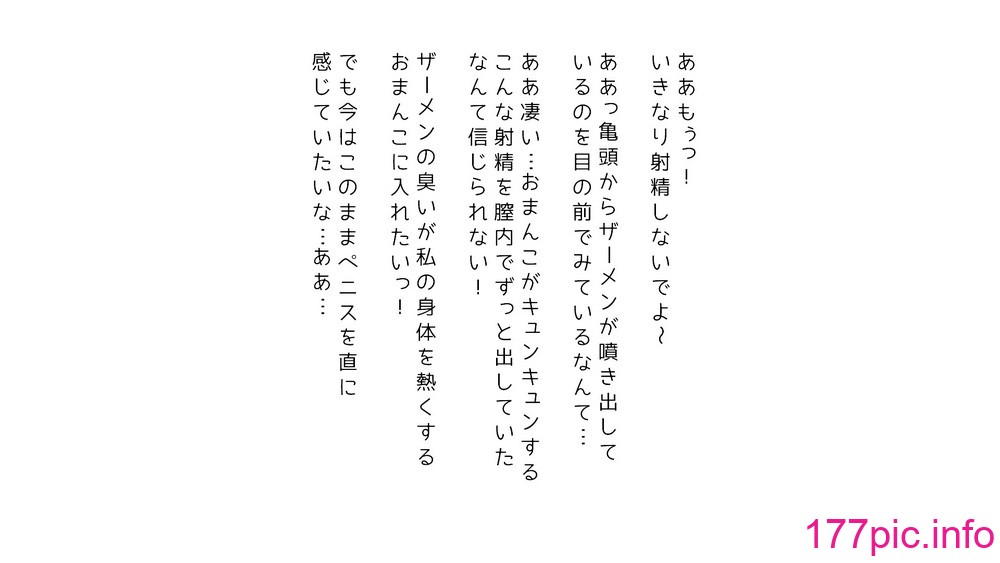 ああもぅっ！
いきなり射精しないでよ～
ああっ亀頭からザーメンが噴き出して
いるのを目の前でみているなんて…
ああ凄い…おまんこがキュンキュンする
こんな射精を膣内でずっと出していた
なんて信じられない！
ザーメンの臭いが私の身体を熱くする
おまんこに入れたいっ！
でも今はこのままペニスを直に
感じていたいな…ああ…
177pic.info